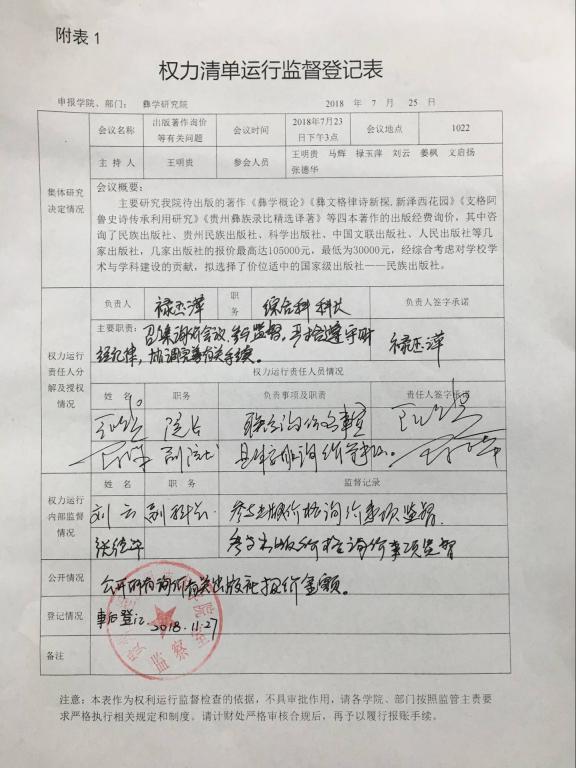 附表 1
权力清单运行监督登记表
申报学院、部门： 彝学研究院 2018 年 7 月 25 日
集体研究决定情况
会议名称 出版著作询价等有关问题 会议时间 2018年7月23日下午3点 会议地点 1022
主 持 人 王明贵 参会人员 王明贵 马辉 禄玉萍 刘云 姜枫 文启扬 张德华
会议概要：
主要研究我院待出版的著作《彝学概论》《彝文格律诗新探,新泽西花园》《支格阿
鲁史诗传承利用研究》《贵州彝族录比精选译著》等四本著作的出版经费询价，其中咨
询了民族出版社、贵州民族出版社、科学出版社、中国文联出版社、人民出版社等几
家出版社，几家出版社的报价最高达105000元，最低为30000元，经综合考虑对学校学
术与学科建设的贡献，拟选择了价位适中的国家级出版社——民族出版社。
权力运行责任人分解及授权情况
负责人 禄玉萍 职务 综合科 科长 负责人签字承诺
主要职责： 召集询价会议，参与监督，严格遵守财
经纪律，协调完善有关手续。
禄玉萍
权力运行责任人员情况
姓 名 职务 负责事项及职责 责任人签字承诺
院长
副院长
权力运行内部监督情况
姓 名 职 务 监督记录
刘云 副科长 参与出版价格询价事项监督
张德华 参与出版价格询价事项监督
公开情况 公开所有询价有关出版社报价金额。
登记情况 事后登记 2018.11.27
监察
备注
注意：本表作为权利运行监督检查的依据，不具审批作用，请各学院、部门按照监管主责要
求严格执行相关规定和制度。请计财处严格审核合规后，再予以履行报账手续。